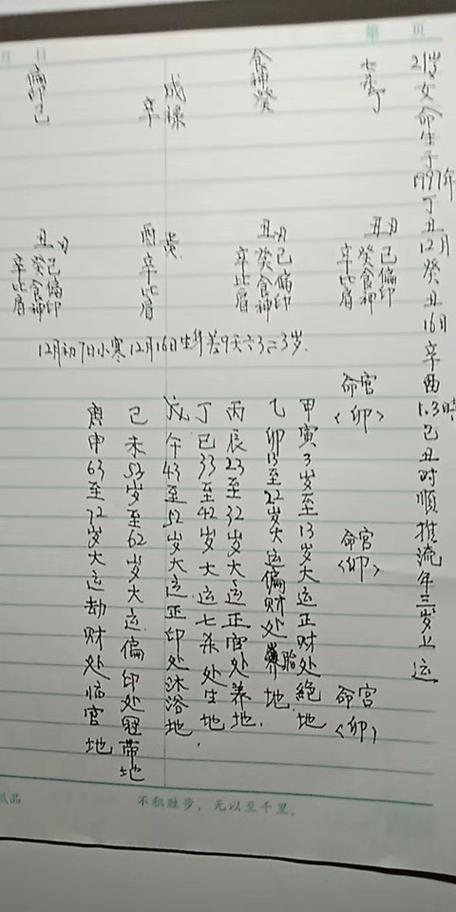 第 页
月 日
21岁女命生于1997年丁丑12月癸丑16日辛酉1.3时己丑时顺推流年三岁上运
七杀丁
食神癸
成禄
辛
偏印己
丑
己偏印
癸食神
辛比肩
丑
己偏印
癸食神
辛比肩
酉
辛比肩
丑
己偏印
癸食神
辛比肩
12月初7日小寒12月16日生
3岁.
命宫
<卯>
命宫
<卯>
命宫
<卯>
甲寅3岁至13岁大运正财处绝地
乙卯13至22岁大运偏财处胎地.
丙辰23至32岁大运正官处养地.
丁巳33至42岁大运七杀处生地
戊午43至52岁大运正印处沐浴地.
己未53岁至62岁大运偏印处冠带地
庚申63至72岁大运劫财处临官地
纸品
不积跬步，无以至千里。